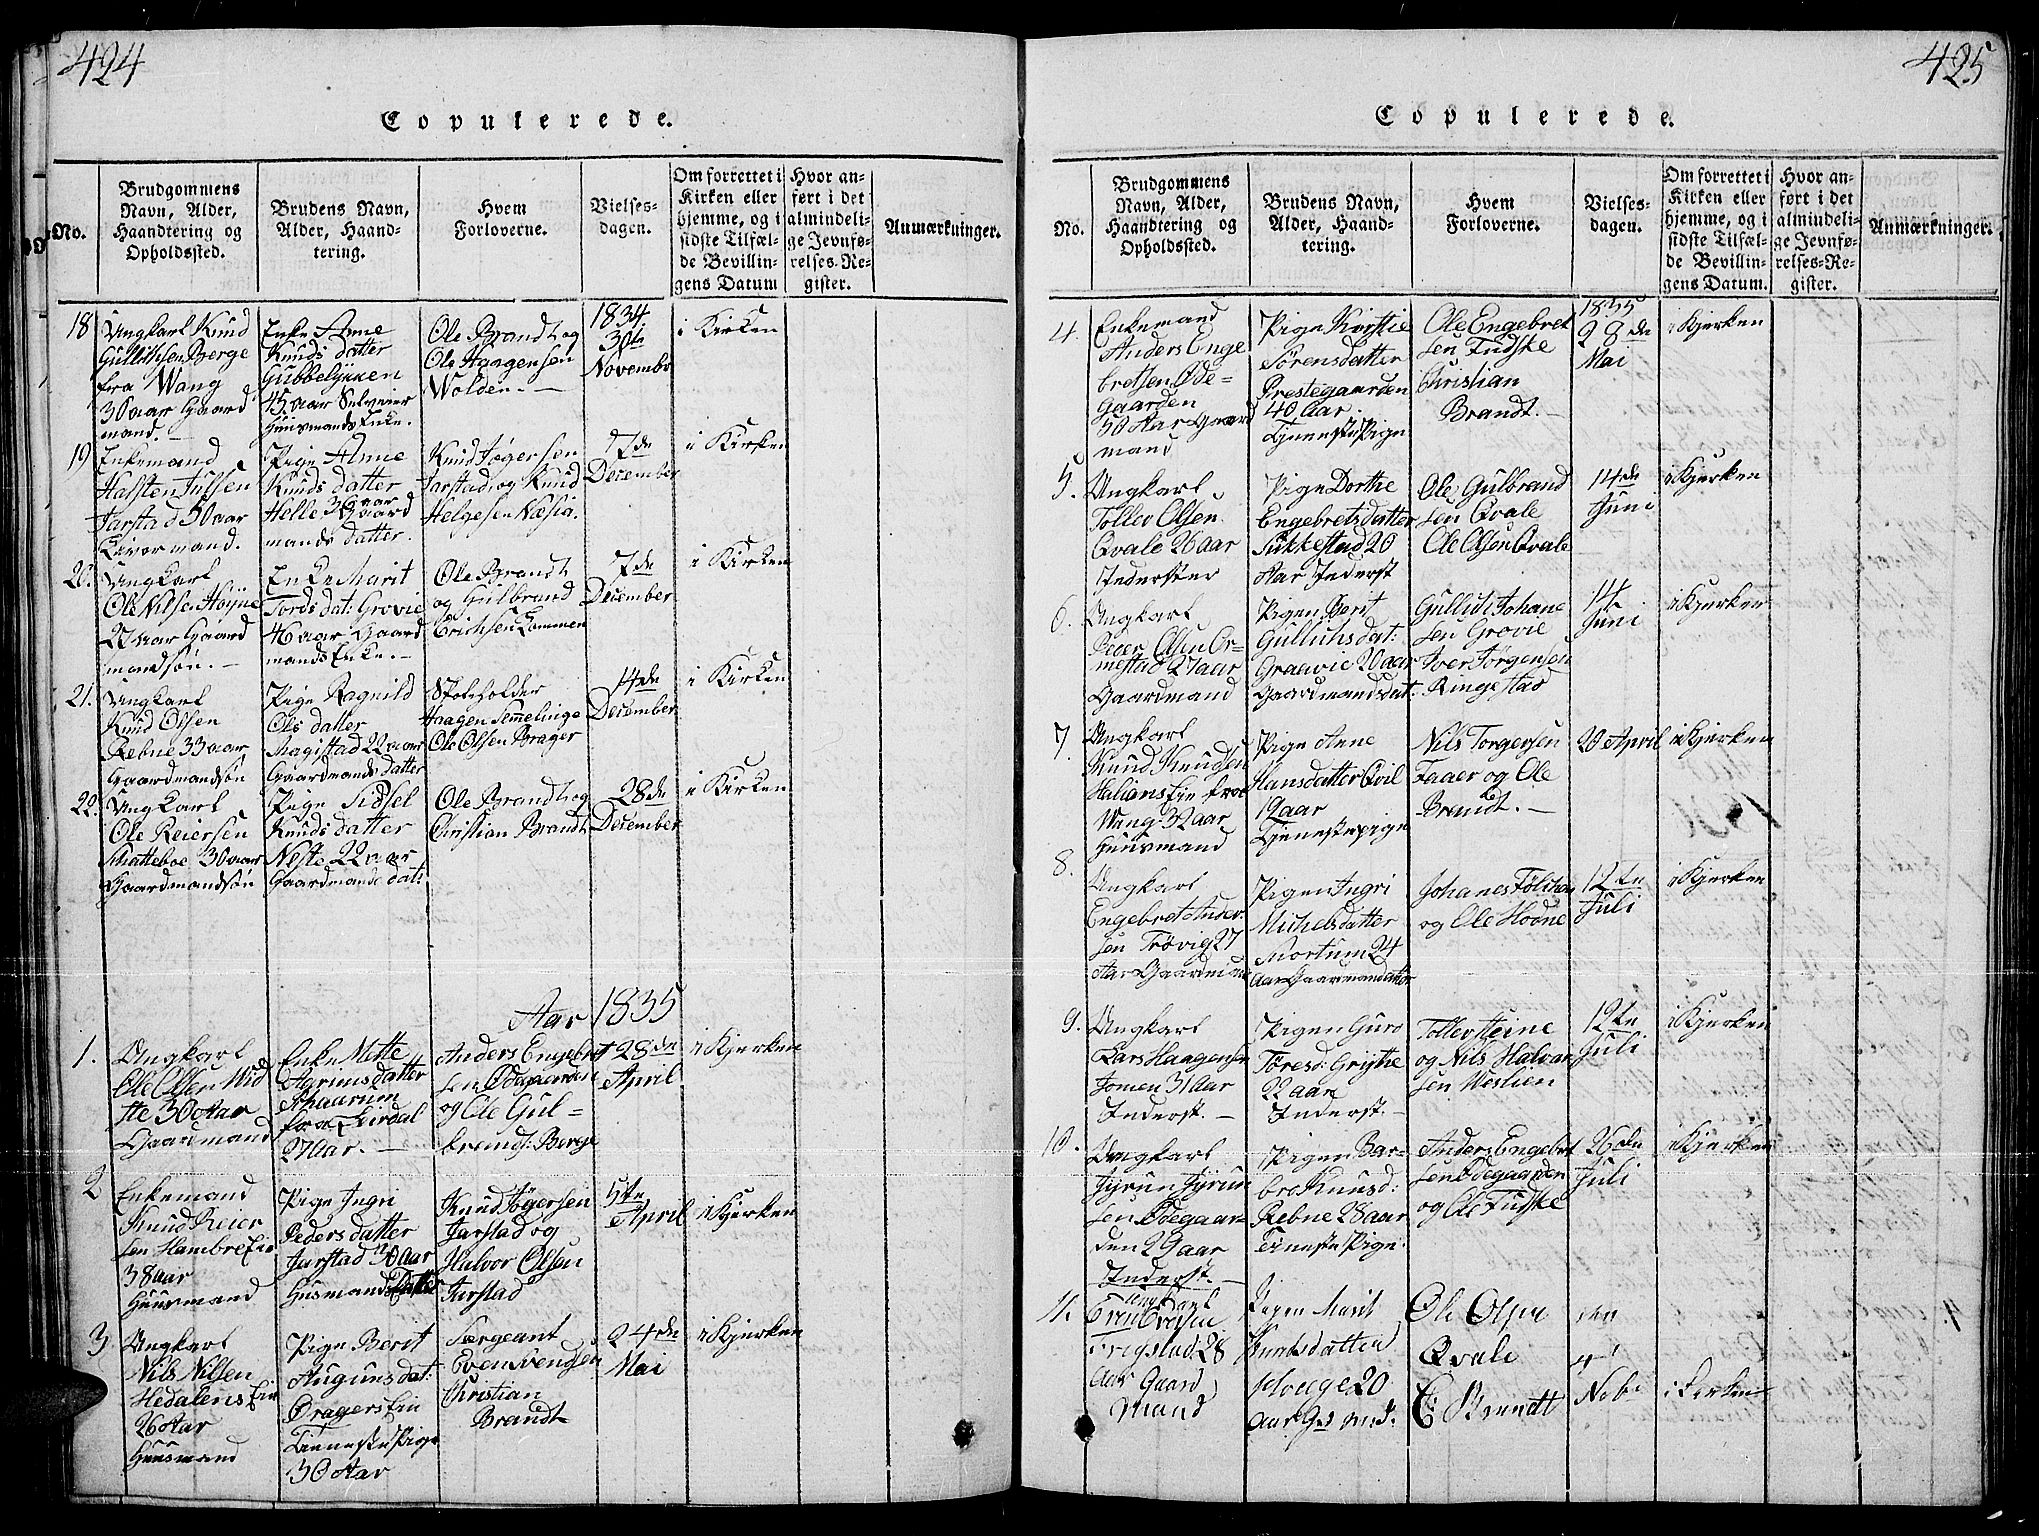 424
Copulerede.
No.
Brudgommens
Navn, Alder,
Haandtering og
Opholdssted.
Brudens Navn,
Alder, Haand-
tering.
Hvem
Forloverne.
Vielses-
dagen.
Om forrettet i
Kirken eller
hjemme, og i
sidste Tilfæl-
de Bevillin-
gens Datum
Hvor an-
ført i det
almindeli-
ge Jevnfø-
relses-Re-
gister.
Anmærkninger.
18
Ungkarl Knud
Gullichsen Berge
fra Wang
30 aar Gaard
mand.
Enke Anne
Knuds datter
Gubbelykken
45 aar Selveier
Huusmands Enke.
Ole Brandt og
Ole Haagensen
Wolden.
1834
30te
Novembr
i Kirken
19
Enkemand
Halsten Julsen
Jarstad 50 aar
Pige Anne
Knuds datter
Helle 36 aar Gaard
mands datter.
Knud Jøgersen
Jarstad, og Knud
Helgesen Næsia.
7de
December
i Kirken
20.
Ungkarl
Ole Nilsen Høyne
27 aar Gaard
mandsøn.
Enke Marit
Tords dat: Grovie
46 aar Gaard
mands Enke.
Ole Brandt
og Gulbrand
Erichsen Lommen
7de
December
i Kirken
21.
Ungkarl
Knud Olsen
Rebne 33 aar
Gaardmandsøn
Pige Ragnild
Ols datter
Magistad 22 aar
Gaardmands datter
Skoleholder
Haagen Semelinge
Ole Olsen Brager
14de
December
i Kirken
22.
Ungkarl
Ole Reiersen
Schatteboe 30 aar
Gaardmandsøn
Pige Sidsel
Knuds datter
Neste 22 aar
Gaardmands dat:
Ole Brandt og
Christian Brandt
28de
December
i Kirken
Aar 1835
1.
Ungkarl
Ole Olsen Wid
ste 30 Aar
Gaardmand
Enke Mette
Aamunsdatter
Schaarum
fra Leirdal
27 Aar.
Anders Engebret
sen Ødegaarden
og Ole Gul=
brandt: Berge
28de
April
i Kjerken
2
Enkemand
Knud Reier
sen Hambre Eie
38 aar
Huusmand
Pige Ingri
Peders datter
Jarstad 30 aar
Husmands Datter
Knud Jøgersen
Jarstad og
Halvor Olsen
Jarstad
5te
April
i Kjerken
3
Ungkarl
Nils Nilsen
Hedalens Eie
26 Aar
Huusmand
Pige Berit
Auguns dat:
Dragers Eie
Tieneste Pige
30 Aar
Sergeant
Even Svendsen
Christian
Brandt
24de
Mai
i Kjerken
425
Copulerede.
No.
Brudgommens
Navn, Alder,
Haandtering og
Opholdssted.
Brudens Navn,
Alder, Haand-
tering.
Hvem
Forloverne.
Vielses-
dagen.
Om forrettet i
Kirken eller
hjemme, og i
sidste Tilfæl-
de Bevillin-
gens Datum.
Hvor an-
ført i det
almindeli-
ge Jevnfø-
relses-Re-
gister.
Anmærkninger.
4
Enkemand
Anders Enge
bretsen Øde=
Gaarden
50 Aar Gaard
mand
Pige Kirstie
Sørensdatter
Prestegaarden
40 Aar.
Tjeneste Pige
Ole Engebret
sen Fudske
Christian
Brandt.
1835
28de
Mai
i Kjerken
5.
Ungkarl
Tollev Olsen
Qvale 26 aar
Inderster
Pige Dorthe
Engebrets datter
Sukkestad 20
Aar Inderst
Ole Gulbrand
sen Qvale
Ole Olsen Qvale
14de
Juni
i Kjerken
6.
Ungkarl
Peder Olsen Or=
mestad 27 aar
Gaardmand
Pigen Berit
Gulluhs dat:
Graavie 20 aar
Gaardmands dat:
Gullich Johane
sen Grovie
Iver Jørgensen
Ringestad
14
Juni
i Kjerken
7.
Ungkarl
Knud Knudsen
Halians Eie fra
Wang 32 aar
Huusmand
Pige Anne
Hansdatter Qvil
19 aar
Tjeneste pige
Nils Torgersen
Faaer og Ole
Brandt.
20 April
i Kjerken
8.
Ungkarl
Engebret Ander
sen Trøvig 27
Aar Gaardmand
Pigen Ingri
Michelsdatter
Mortum 24
Aar Gaarmandatter
Johanes Følihan
og Ole Hovne
12te
Juli
i Kjerken
9.
Ungkarl
Lars Haagensen
Jomen 31 Aar
Inderst.
Pigen Guro
Tøresd: Grythe
22 aar
Inderst.
Tollev Heine
og Nils Halvar
sen Weslien
12te
Juli
i Kjerken
10.
Ungkarl
Jyrun Jyrun
sen Ødegaar=
den 29 aar
Inderst.
Pigen Bar=
bro Knusd:
Rebne 28 aar
Tieneste Pige.
Anders Engebret
sen Ødegaarden
og Ole Fudske
26de
Juli
i Kjerken
11.
Ungkarl
28
Aar Gaard
Mand
Pigen Marit
Knutsdatter
20
aar Gd md.
Ole Olsen
Qvale
C: Brandt
den
Nobr
i Kirken